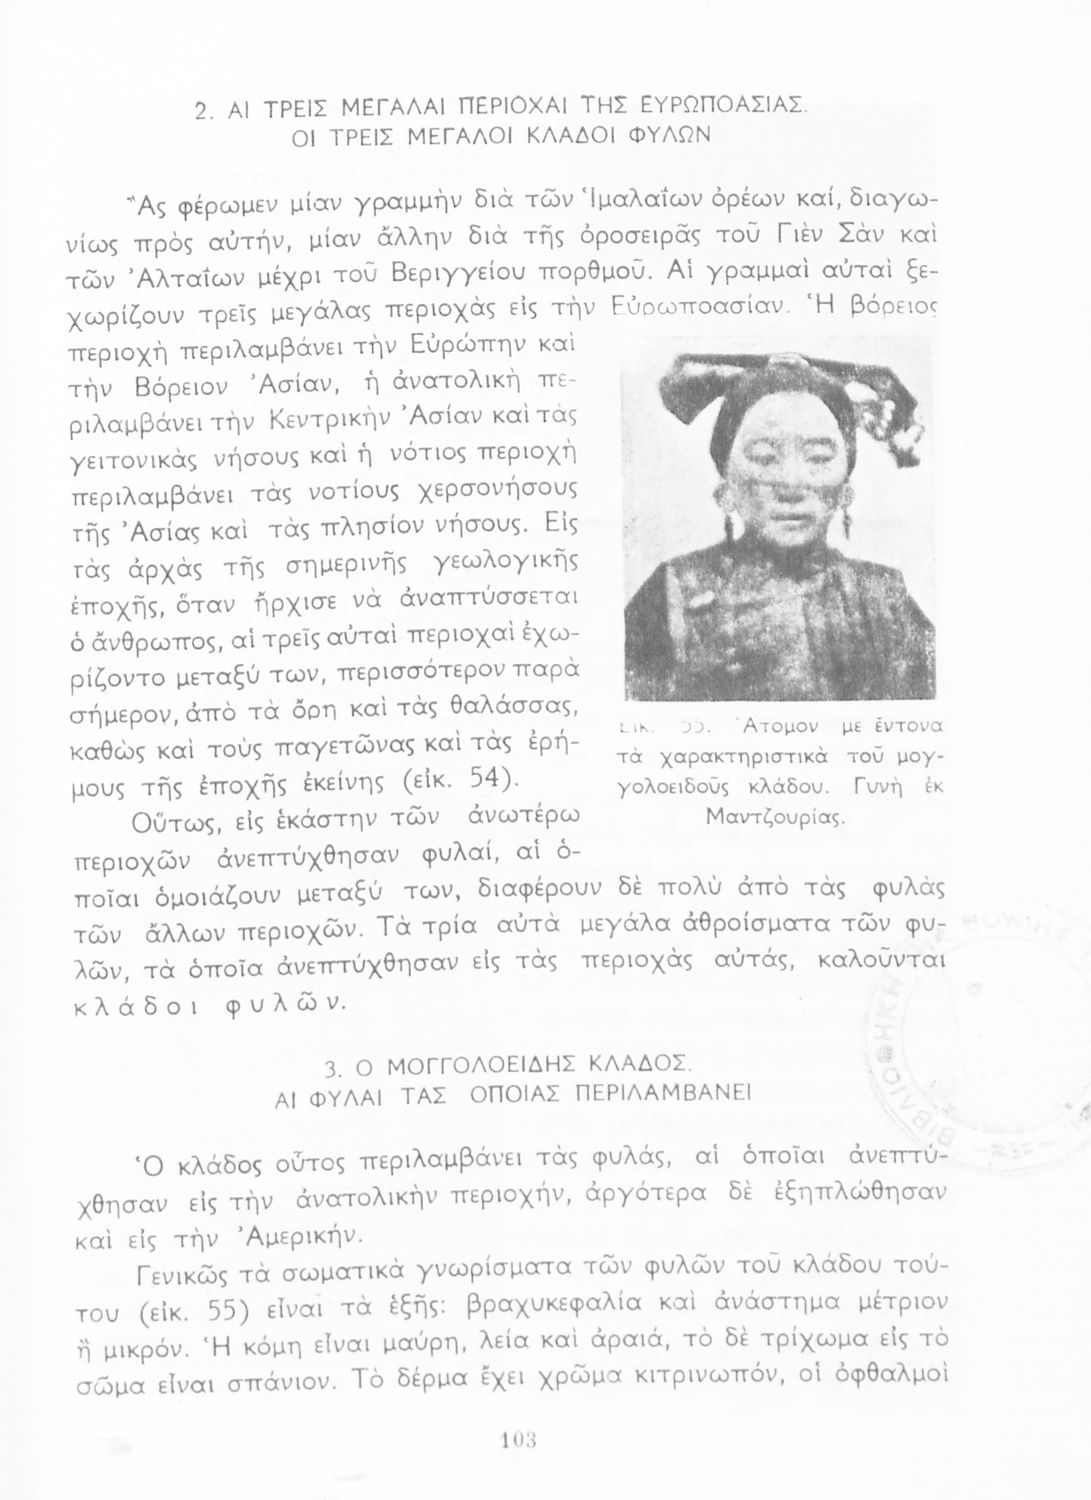 2. ΑΙ ΤΡΕΙΣ ΜΕΓΑΛΑΙ ΠΕΡΙΟΧΑΙ ΤΗΣ ΕΥΡΩΠΟΑΣΙΑΣ.
ΟΙ ΤΡΕΙΣ ΜΕΓΑΛΟΙ ΚΛΑΔΟΙ ΦΥΛΩΝ
Ἂς φέρωμεν μίαν γραμμὴν διὰ τῶν Ἱμαλαΐων ὀρέων καί, διαγω-
νίως πρὸς αὐτήν, μίαν ἄλλην διὰ τῆς ὀροσειρᾶς τοῦ Γιὲν Σὰν καὶ
τῶν Ἀλταΐων μέχρι τοῦ Βεριγγείου πορθμοῦ. Αἱ γραμμαὶ αὐταὶ ξε-
χωρίζουν τρεῖς μεγάλας περιοχὰς εἰς τὴν Εὐρωποασίαν. Ἡ βόρειος
περιοχὴ περιλαμβάνει τὴν Εὐρώπην καὶ
τὴν Βόρειον Ἀσίαν, ἡ ἀνατολικὴ πε-
ριλαμβάνει τὴν Κεντρικὴν Ἀσίαν καὶ τὰς
γειτονικὰς νήσους καὶ ἡ νότιος περιοχὴ
περιλαμβάνει τὰς νοτίους χερσονήσους
τῆς Ἀσίας καὶ τὰς πλησίον νήσους. Εἰς
τὰς ἀρχὰς τῆς σημερινῆς γεωλογικῆς
ἐποχῆς, ὅταν ἤρχισε νὰ ἀναπτύσσεται
ὁ ἄνθρωπος, αἱ τρεῖς αὐταὶ περιοχαὶ ἐχω-
ρίζοντο μεταξύ των, περισσότερον παρὰ
σήμερον, ἀπὸ τὰ ὄρη καὶ τὰς θαλάσσας,
καθὼς καὶ τοὺς παγετῶνας καὶ τὰς ἐρή-
μους τῆς ἐποχῆς ἐκείνης (εἰκ. 54).
Οὕτως, εἰς ἑκάστην τῶν ἀνωτέρω
περιοχῶν ἀνεπτύχθησαν φυλαί, αἱ ὁ-
ποῖαι ὁμοιάζουν μεταξύ των, διαφέρουν δὲ πολὺ ἀπὸ τὰς φυλὰς
τῶν ἄλλων περιοχῶν. Τὰ τρία αὐτὰ μεγάλα ἀθροίσματα τῶν φυ-
λῶν, τὰ ὁποῖα ἀνεπτύχθησαν εἰς τὰς περιοχὰς αὐτάς, καλοῦνται
κλάδοι φυλῶν.
Εἰκ. 55. Ἄτομον με ἔντονα
τὰ χαρακτηριστικὰ τοῦ μογ-
γολοειδοῦς κλάδου. Γυνὴ ἐκ
Μαντζουρίας.
3. Ο ΜΟΓΓΟΛΟΕΙΔΗΣ ΚΛΑΔΟΣ.
ΑΙ ΦΥΛΑΙ ΤΑΣ ΟΠΟΙΑΣ ΠΕΡΙΛΑΜΒΑΝΕΙ
Ὁ κλάδος οὗτος περιλαμβάνει τὰς φυλάς, αἱ ὁποῖαι ἀνεπτύ-
χθησαν εἰς τὴν ἀνατολικὴν περιοχήν, ἀργότερα δὲ ἐξηπλώθησαν
καὶ εἰς τὴν Ἀμερικήν.
Γενικῶς τὰ σωματικὰ γνωρίσματα τῶν φυλῶν τοῦ κλάδου τού-
του (εἰκ. 55) εἶναι τὰ ἑξῆς: βραχυκεφαλία καὶ ἀνάστημα μέτριον
ἢ μικρόν. Ἡ κόμη εἶναι μαύρη, λεία καὶ ἀραιά, τὸ δὲ τρίχωμα εἰς τὸ
σῶμα εἶναι σπάνιον. Τὸ δέρμα ἔχει χρῶμα κιτρινωπόν, οἱ ὀφθαλμοὶ
103
ΒΙΒΛΙΟΘΗΚΗ